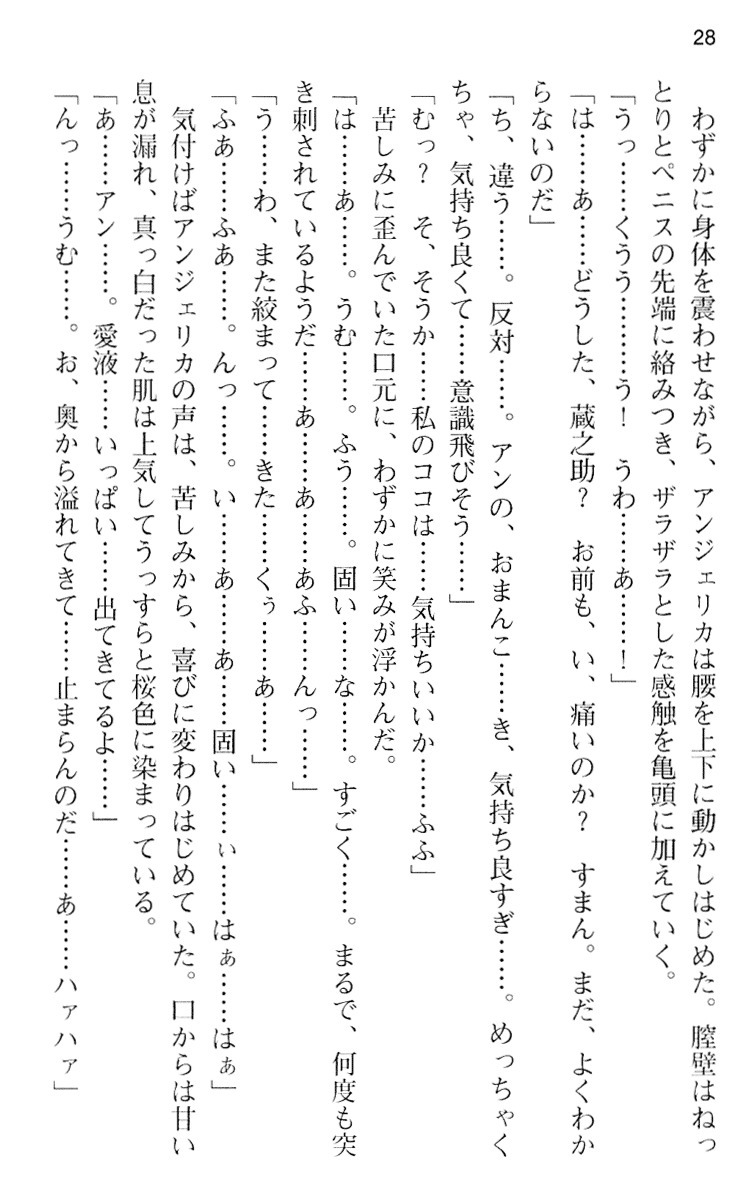 28
　わずかに身体を震わせながら、アンジェリカは腰を上下に動かしはじめた。膣壁はねっ
とりとペニスの先端に絡みつき、ザラザラとした感触を亀頭に加えていく。
「うっ……くうう………う！　うわ……あ……！」
「は……あ……どうした、蔵之助？　お前も、い、痛いのか？　すまん。まだ、よくわか
らないのだ」
「ち、違う……。反対……。アンの、おまんこ……き、気持ち良すぎ……。めっちゃく
ちゃ、気持ち良くて……意識飛びそう……」
「むっ？　そ、そうか……私のココは……気持ちいいか……ふふ」
　苦しみに歪んでいた口元に、わずかに笑みが浮かんだ。
「は……あ……。うむ……。ふう……。固い……な……。すごく……。まるで、何度も突
き刺されているようだ……あ……あ……あふ……んっ……」
「う……わ、また絞まって……きた……くぅ……あ……」
「ふあ……ふあ……。んっ……。い……あ……あ……固い……ぃ……はぁ……はぁ」
　気付けばアンジェリカの声は、苦しみから、喜びに変わりはじめていた。口からは甘い
息が漏れ、真っ白だった肌は上気してうっすらと桜色に染まっている。
「あ……アン……。愛液……いっぱい……出てきてるよ……」
「んっ……うむ……。お、奥から溢れてきて……止まらんのだ……あ……ハァハァ」